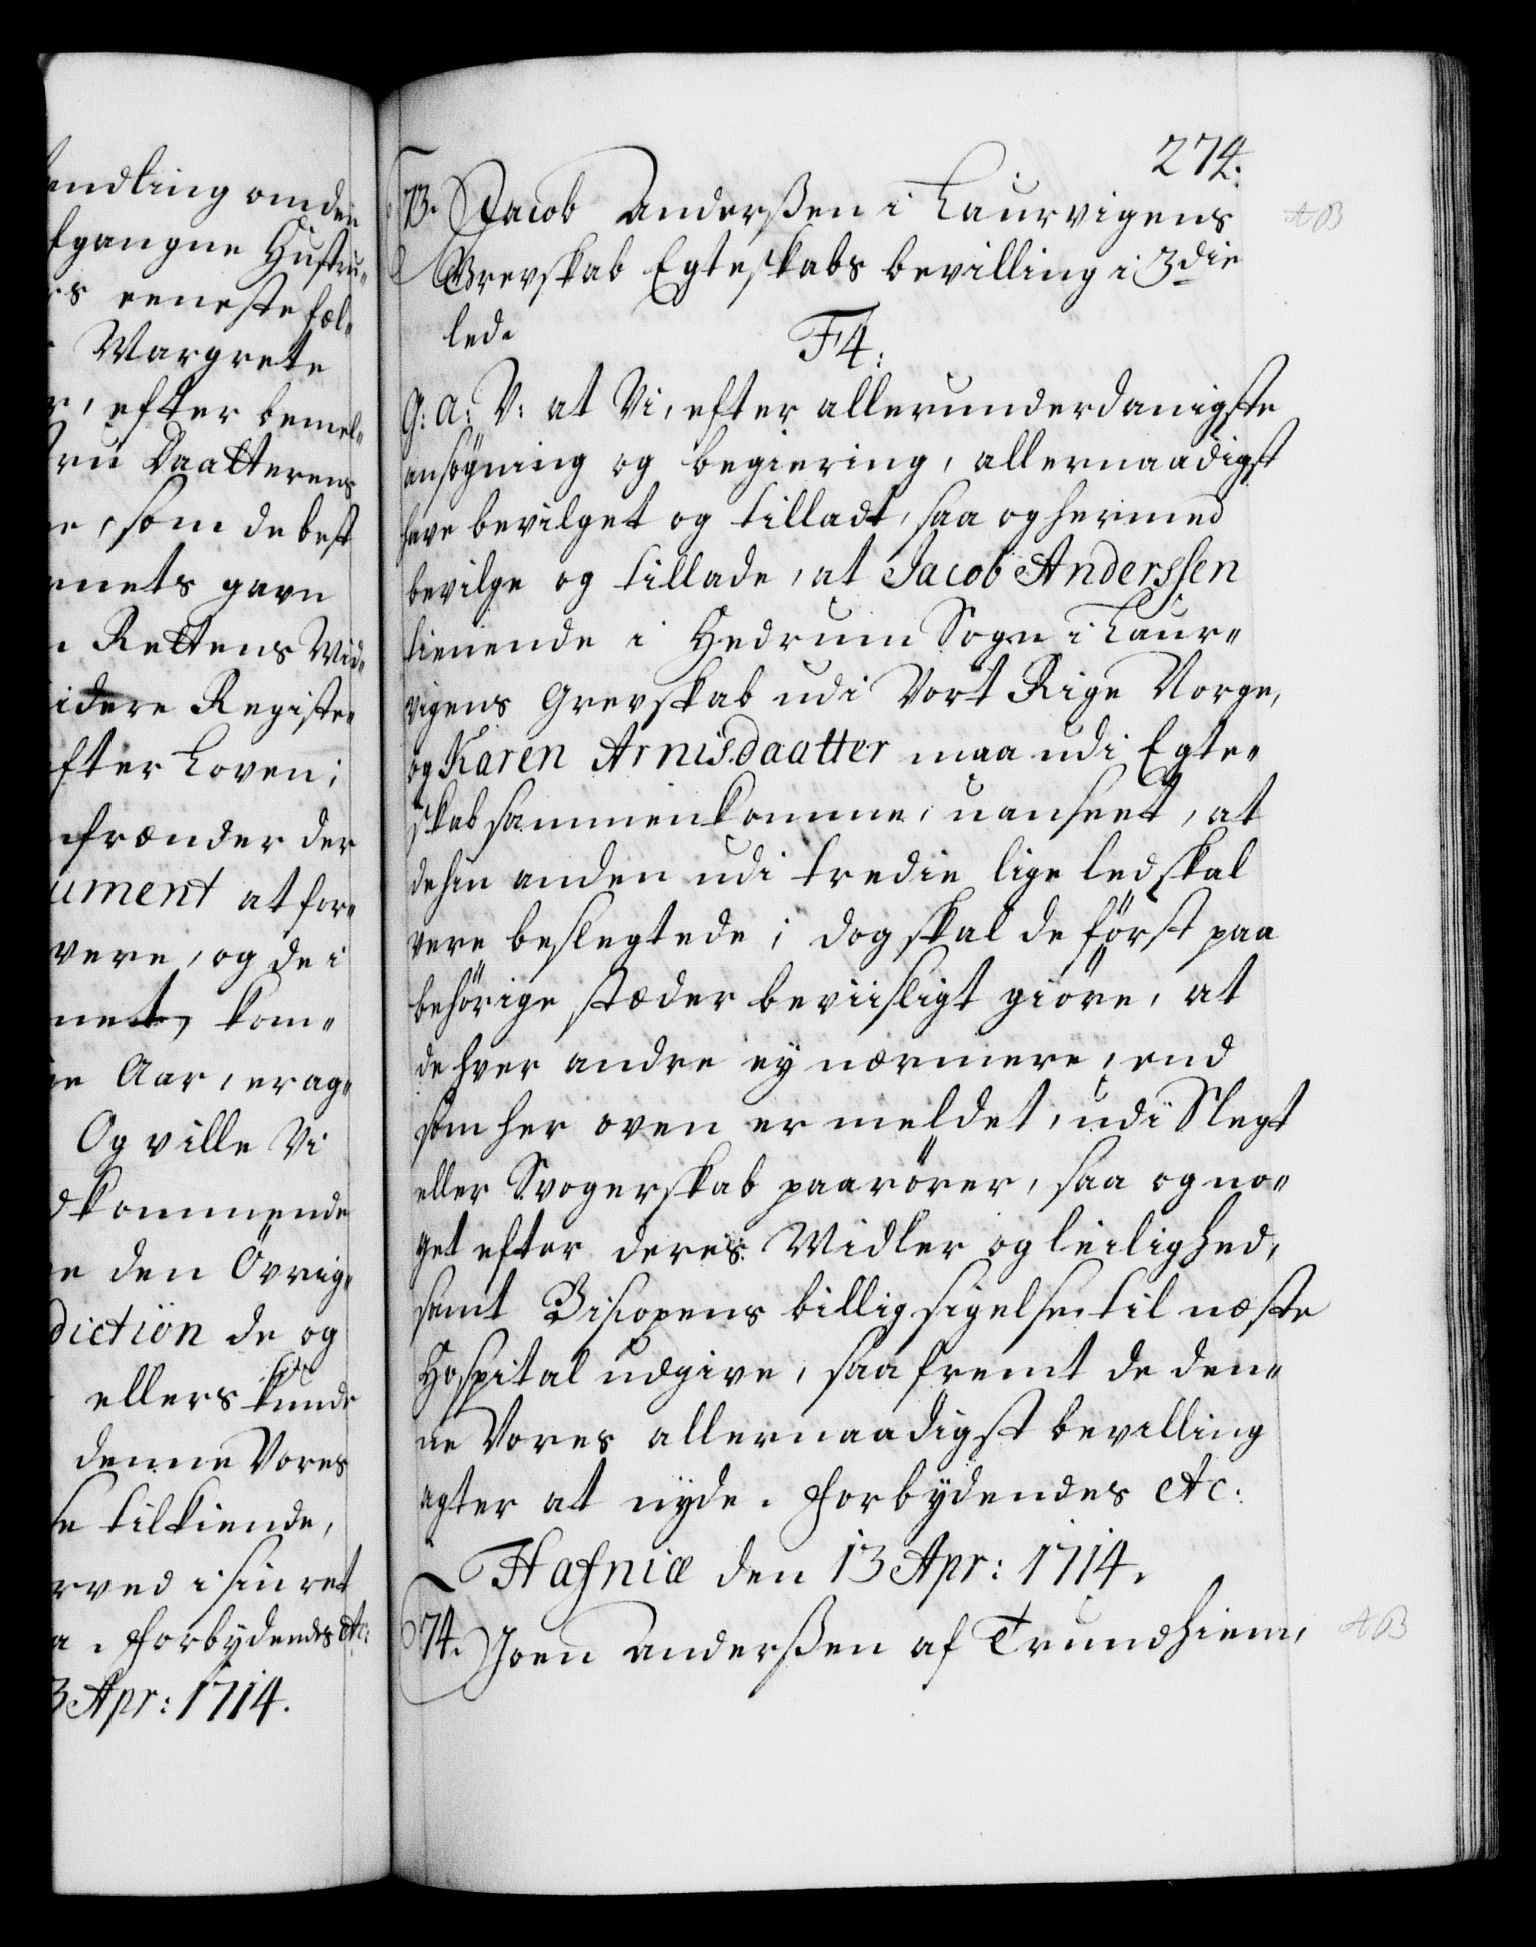 endling om den
fgangne Hustru¬
s eeneste fæl¬
Margrete
r, efter bemel¬
ru Daatterens
e, som de best
rnets gavn
Rettens Mid¬
idere Registe¬
fter Loven;
frænder der
ument at for¬
vere, og de i
net, kom¬
ge Aar, erag¬
Og ville Vi
dkommende
e den Övrig¬
diction de og
ellers kunde
denne Vores
se tilkiende,
rved i sin ret
a. Forbydendes etc:
3 Apr: 1714.
274.
73. Jacob Anderßen i Laurvigens
Grevskab Egteskabs bevilling i 3die
led.
F4:
G: A: V: at Vi, efter allerunderdanigste
ansögning og begiering, allernaadigst
have bevilget og tilladt, saa og hermed
bevilge og tillade, at Jacob Anderssen
tienende i Hedrum Sogn i Laur¬
vigens Grevskab udi Vort Rige Norge,
og Karen Arnisdaatter maa udi Egte¬
skab sammenkomme, uanseet, at
de hin anden udi tredie lige led skal
vere beslegtede; dog skal de först paa
behörige stæder beviisligt giöre, at
de hver andre ey nærmere, end
som her oven er meldet, udi Slegt
eller Svogerskab paarörer, saa og no¬
get efter deres Midler og leilighed,
samt Biscopens billig sigelse til næste
Hospital udgive, saafremt de den¬
ne Vores allernaadigst bevilling
agter at nyde. Forbydendes etc.
Hafniæ den 13 Apr: 1714.
74. Joen Anderßen af Trundhiem,
AB
AB